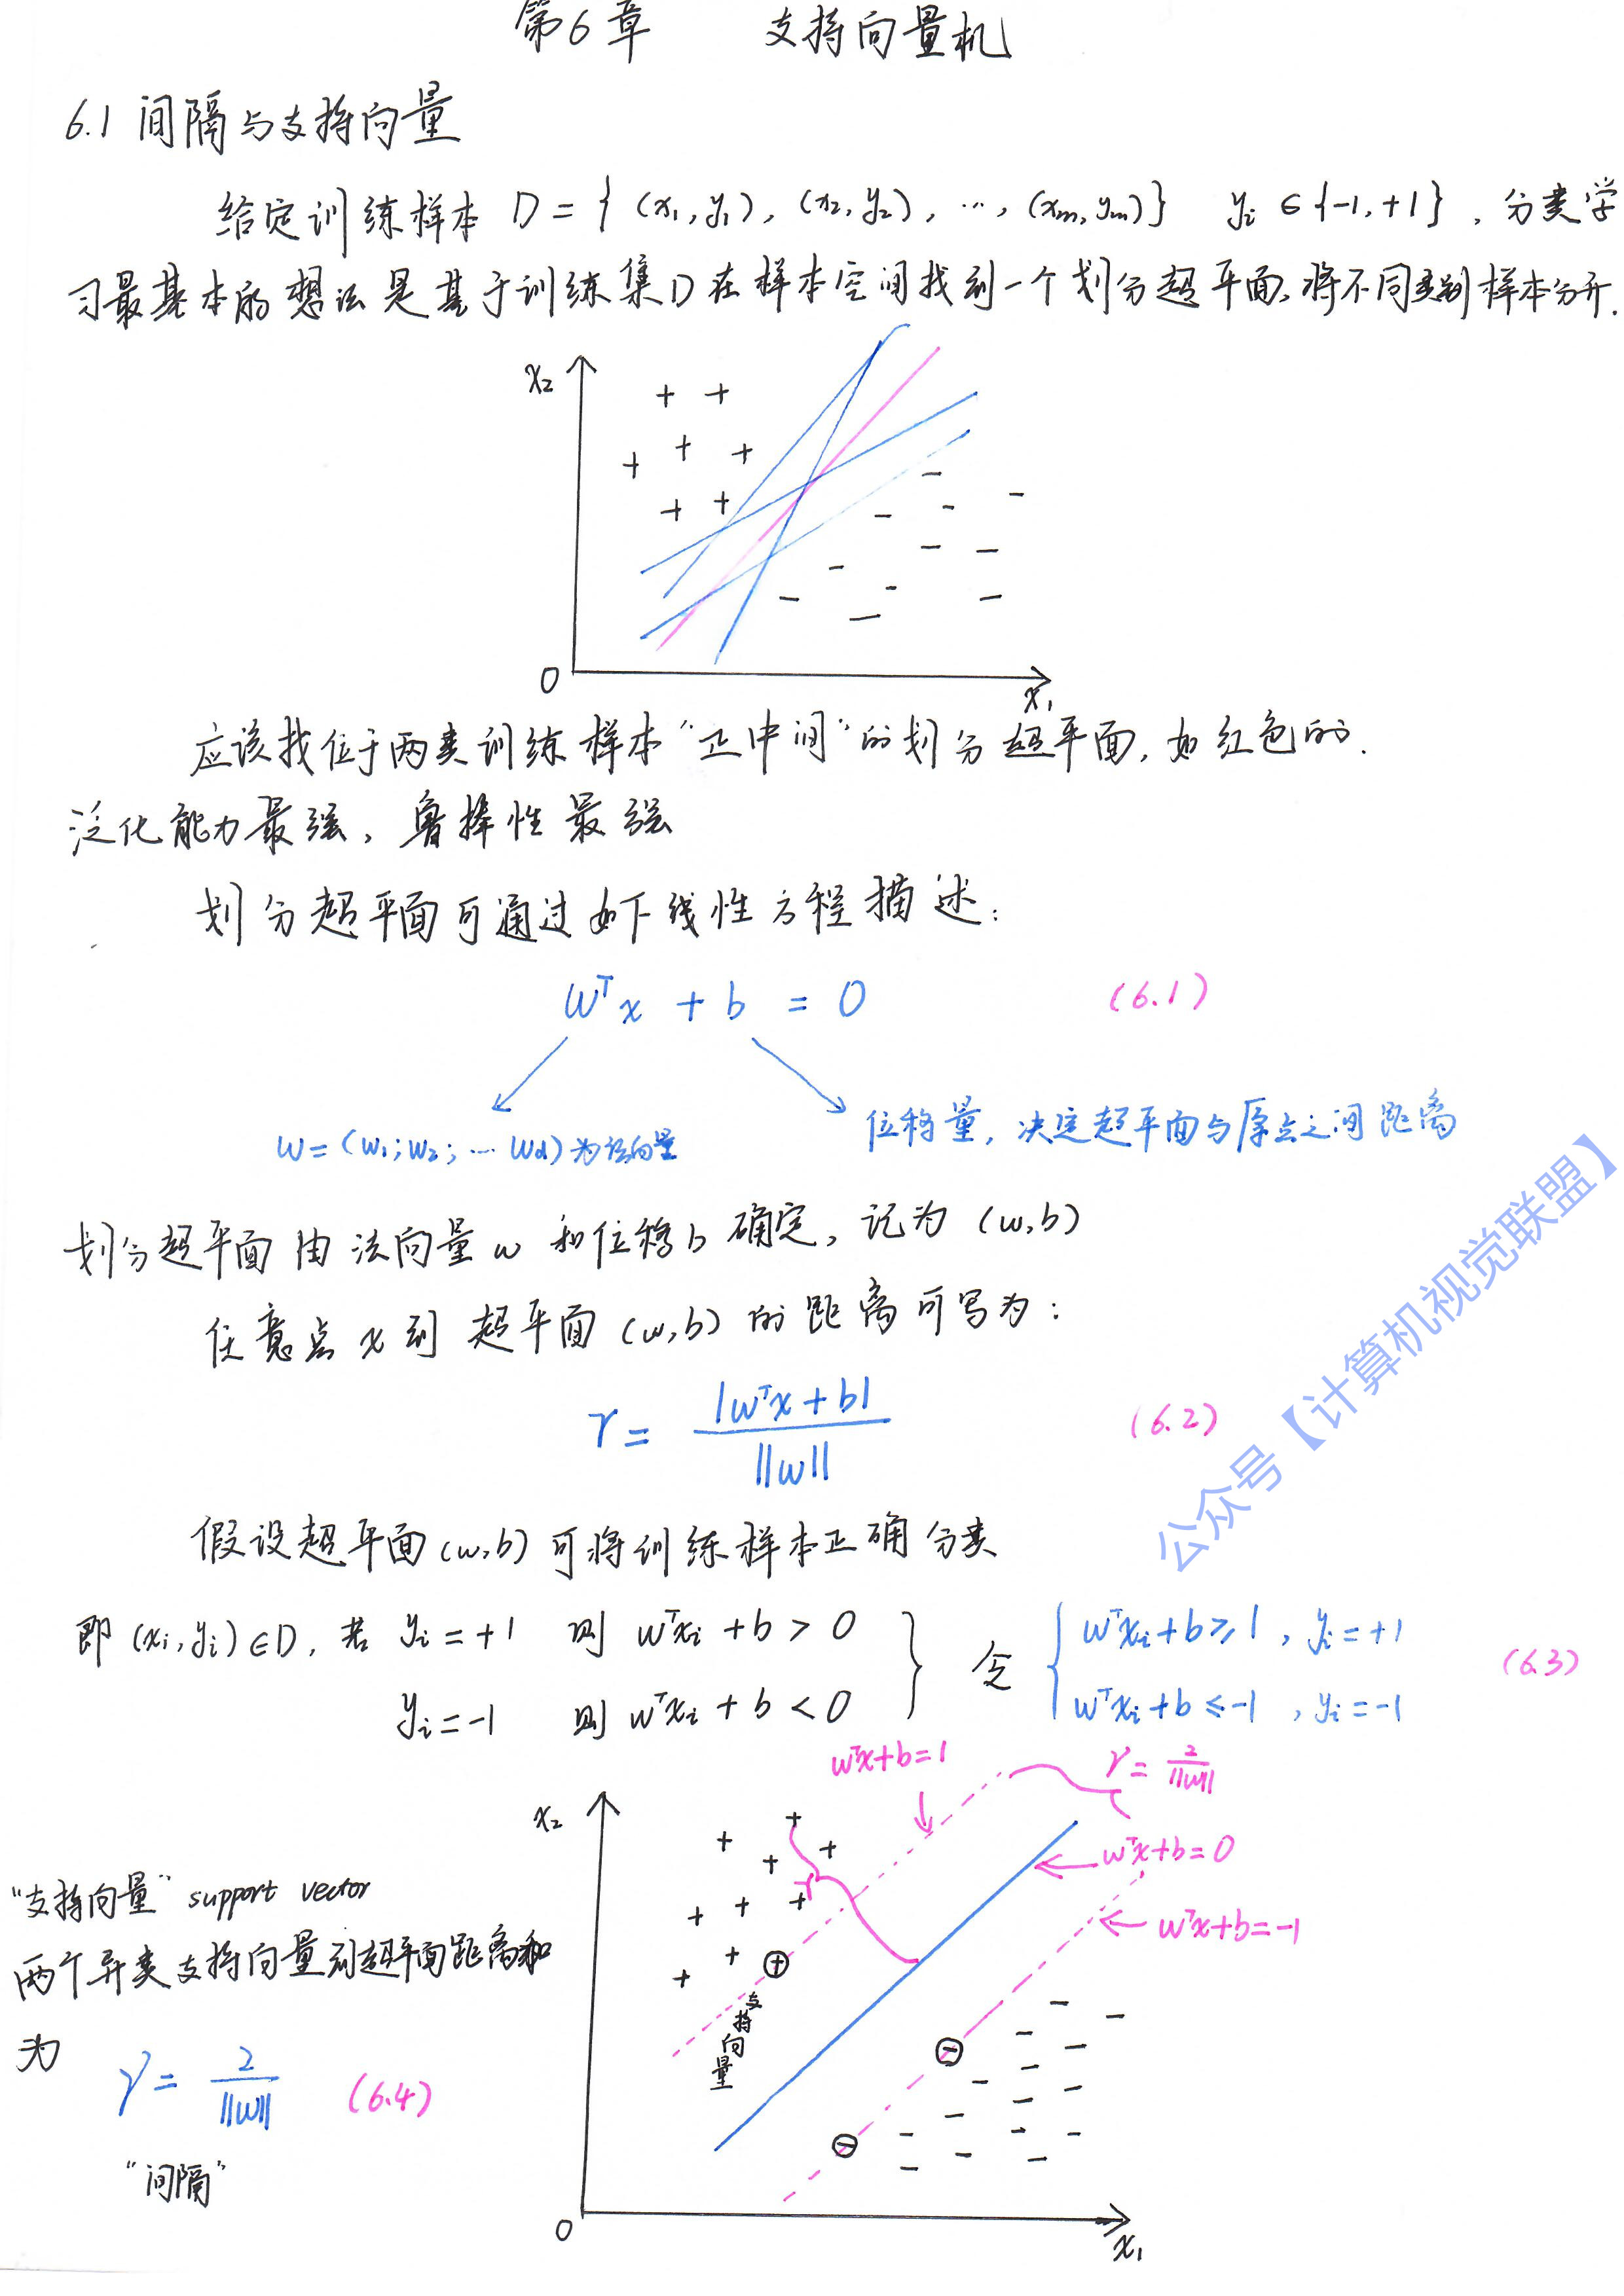 第6章 支持向量机
6.1 间隔与支持向量
给定训练样本 D = { (x₁, y₁), (x₂, y₂), ..., (xₘ, yₘ)} yᵢ ∈ {-1, +1}, 分类学
习最基本的想法是基于训练集D在样本空间找到一个划分超平面,将不同类别样本分开.
x₂
0
x₁
应该找位于两类训练样本“正中间”的划分超平面, 如红色的.
泛化能力最强, 鲁棒性最强
划分超平面可通过如下线性方程描述:
wᵀx + b = 0 (6.1)
w = (w₁; w₂; ... w_d) 为法向量
位移量, 决定超平面与原点之间距离
划分超平面由法向量w和位移b确定, 记为 (w, b)
任意点x到超平面 (w, b) 的距离可写为:
r = |wᵀx + b| / ||w|| (6.2)
假设超平面 (w, b) 可将训练样本正确分类
即 (xᵢ, yᵢ) ∈ D, 若 yᵢ = +1 则 wᵀxᵢ + b > 0 } 令 { wᵀxᵢ + b ≥ 1, yᵢ = +1 (6.3)
yᵢ = -1 则 wᵀxᵢ + b < 0 wᵀxᵢ + b ≤ -1, yᵢ = -1
wᵀx + b = 1
γ = 2 / ||w||
x₂
wᵀx + b = 0
wᵀx + b = -1
r
支持向量
0
x₁
“支持向量” support vector
两个异类支持向量到超平面距离和
为
γ = 2 / ||w|| (6.4)
“间隔”
公众号【计算机视觉联盟】